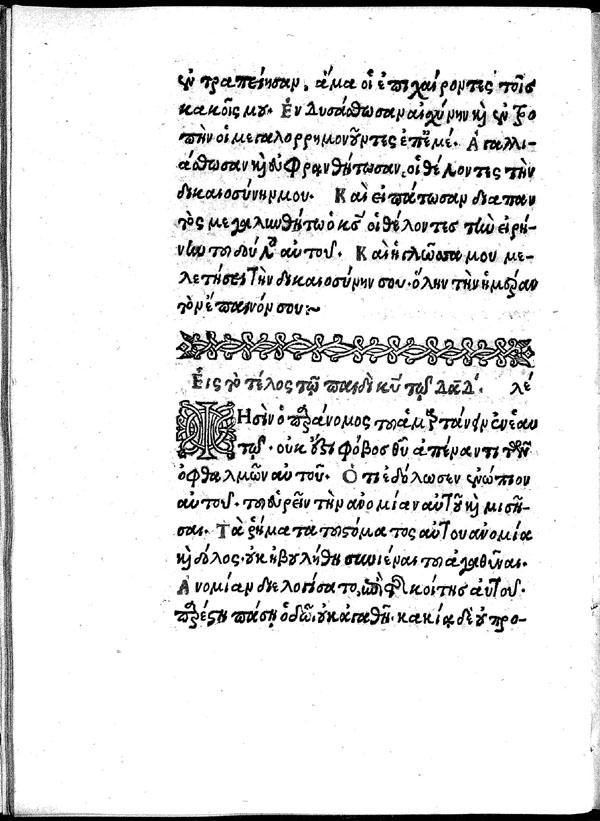 ἐντραπείησαν, ἅμα οἱ ἐπιχαίροντες τοῖς
κακοῖς μου. Ἐνδυσάσθωσαν αἰσχύνην καὶ ἐντρο
πὴν οἱ μεγαλορρημονοῦντες ἐπ' ἐμέ. Ἀγαλλι
άσθωσαν καὶ εὐφρανθήτωσαν, οἱ θέλοντες τὴν
δικαιοσύνην μου. Καὶ εἰπάτωσαν διαπαν
τὸς μεγαλυνθήτω ὁ κς οἱ θέλοντες τὴν εἰρή
νην τοῦ δούλου αὐτοῦ. Καὶ ἡ γλῶσσα μου με-
λετήσει τὴν δικαιοσύνην σου. ὅλην τὴν ἡμέραν
τὸν ἔπαινόν σου:~
Εἰς τὸ τέλος τῷ παιδὶ κυ τῷ Δαδ. λέ
Φησὶν ὁ παράνομος τοῦ ἁμαρτάνειν ἐν ἑαυ
τῷ. οὐκ ἔστι φόβος θυ ἀπέναντι τῶν
ὀφθαλμῶν αὐτοῦ. Ὅτι ἐδόλωσεν ἐνώπιον
αὐτοῦ. τοῦ εὑρεῖν τὴν ἀνομίαν αὐτοῦ καὶ μισῆ
σαι. Τὰ ῥήματα τοῦ στόματος αὐτοῦ ἀνομία
καὶ δόλος. οὐκ ἠβουλήθη συνιέναι τοῦ ἀγαθῦναι.
Ἀνομίαν διελογίσατο, ἐπὶ τῆς κοίτης αὐτοῦ.
παρέστη πάσῃ ὁδῷ. οὐκ ἀγαθῇ. κακίᾳ δὲ οὐ προ-